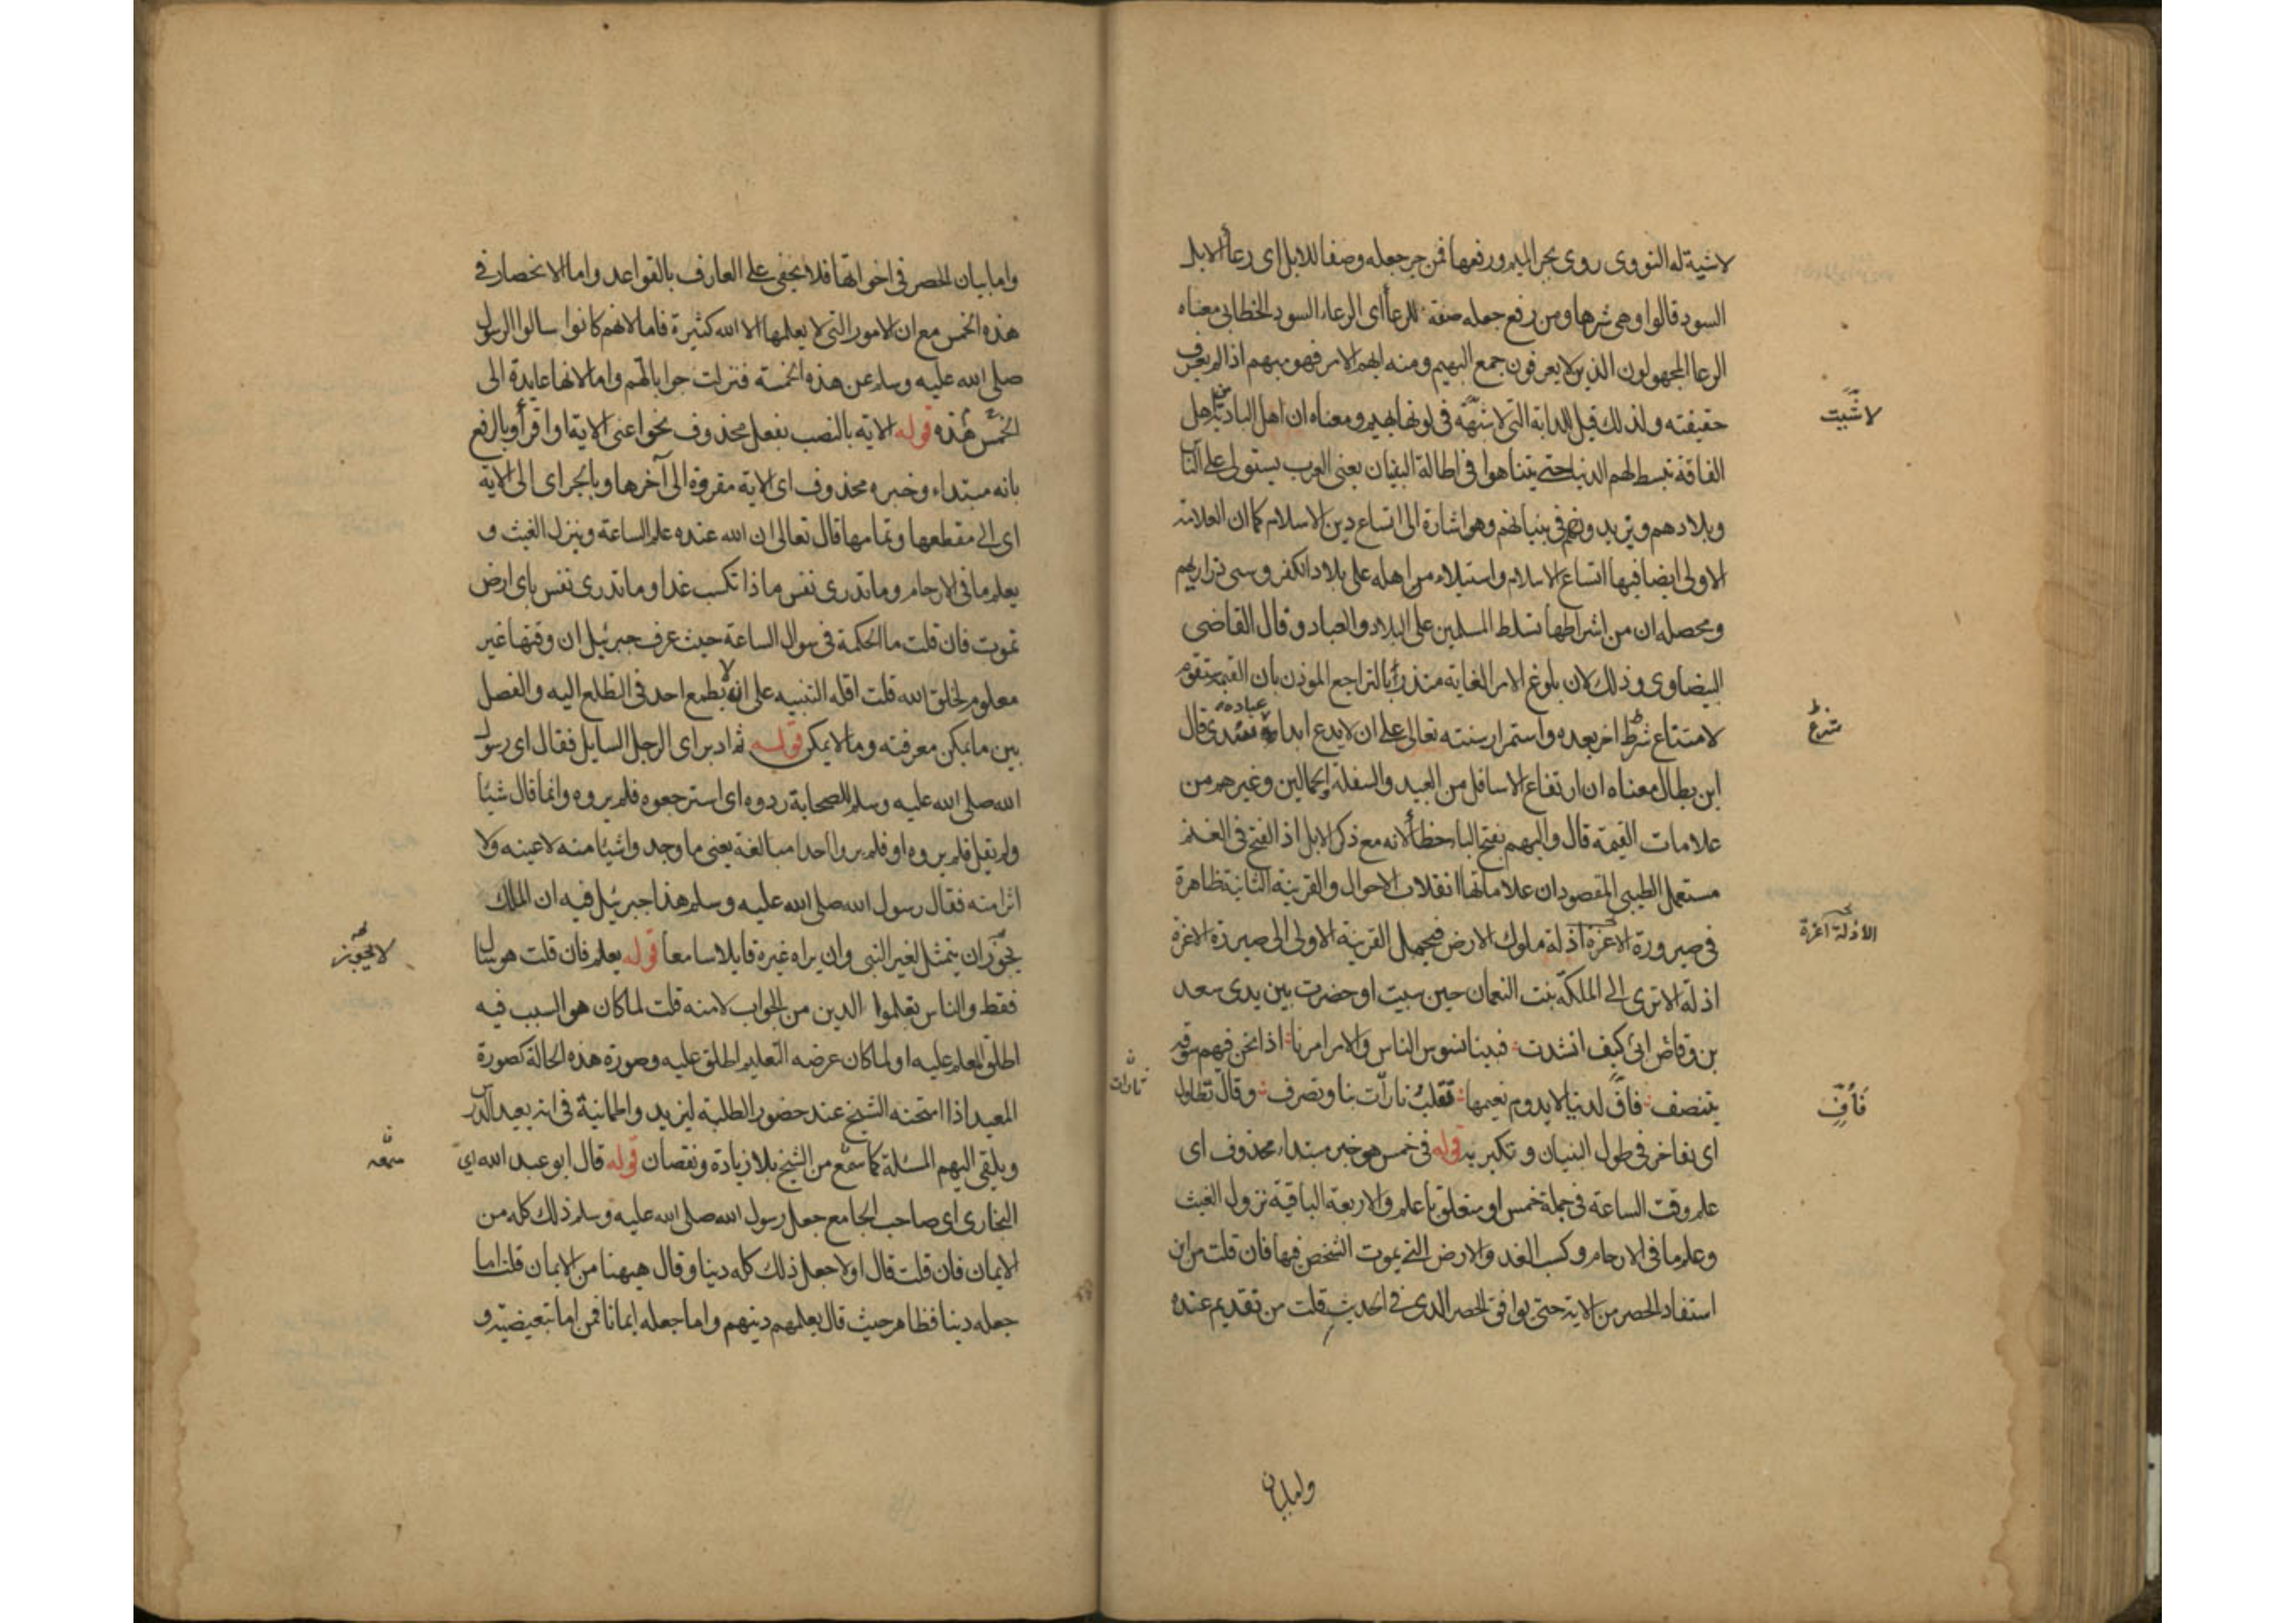 لاشية له النووى روى بجر الميم ورفعها فمن جر جعله وصفا للابل اى رعاء الابل
السود قالوا وهى شرها ومن رفع جعله صفة للرعاء اى الرعاء السود الخطابى معناه
الرعا المجهولون الذين لا يعرفون جمع البهيم ومنه ابهم الامر فهو مبهم اذا لم يعرف
حقيقته ولذلك قيل للدابة التى لا شية فى لونها بهيم ومعناه ان اهل البادية من اهل
الفاقة تبسط لهم الدنيا حتى يتناهوا فى اطالة البنيان يعنى العرب يستولى على الناس
وبلادهم ويزيدونهم فى بنيانهم وهو اشارة الى اتساع دين الاسلام كما ان العلامة
الاولى ايضا فيها اتساع الاسلام واستيلاء من اهله على بلاد الكفر وسبى ذراريهم
ومحصله ان من اشراطها تسلط المسلمين على البلاد والعباد وقال القاضى
البيضاوى وذلك لان بلوغ الامر الغاية منذر بالتراجع الموذن بان القيمة تقوم
لامتناع شرط اخر بعده واستمرار سنته تعالى على ان لا يدع ابدا عباده سدى قال
ابن بطال معناه ان ارتفاع الاسافل من العبيد والسفلة الجمالين وغيرهم من
علامات القيمة قال والبهم بفتح الباء خطأ لانه مع ذكر الابل اذ الفتح فى الغنم
مستعمل الطيبى المقصود ان علاماتها انقلاب الاحوال والقرينة الثانية ظاهرة
فى صيرورة الاعزة اذلة ملوك الارض فيحمل القرينة الاولى الى صيرورة الاعزة
اذلة الا ترى الى الملكة بنت النعمان حين سبيت او حضرت بين يدى سعد
بن وقاص ابى كيف انشدت فبينا نسوس الناس والامر امرنا اذا نحن فيهم سوقة
يتنصف فاف لدنيا لا يدوم نعيمها تقلب تارات بنا وتصرف وقال تطاول
اى تفاخر فى طول البنيان وتكبر به قوله فى خمس هو خبر مبتداء محذوف اى
علم وقت الساعة فى جملة خمس او متعلق باعلم والاربعة الباقية نزول الغيث
وعلم ما فى الارحام وكسب الغد والارض التى يموت الشخص فيها فان قلت من اين
استفاد الحصر من الاية حتى يوافق الحصر الذى فى الحديث قلت من تقديم عنده
وامابيان
لاشيت
شرع
الاذلة اعزة
فأف
تارات
وامابيان الحصر فى اخواتها فلا يخفى على العارف بالقواعد واما الانحصار فى
هذه الخمس مع ان الامور التى لا يعلمها الا الله كثيرة فاما لانهم كانوا سالوا الرسول
صلى الله عليه وسلم عن هذه الخمسة فنزلت جوابا لهم واما لانها عايدة الى
الخمس هذه قوله الاية بالنصب بفعل محذوف نحو اعنى الاية او اقرأ وبالرفع
بانه مبتداء وخبره محذوف اى الاية مقروة الى آخرها وبالجر اى الى الاية
اى الى مقطعها وتمامها قال تعالى ان الله عنده علم الساعة وينزل الغيث و
يعلم ما فى الارحام وما تدرى نفس ماذا تكسب غدا وما تدرى نفس باى ارض
تموت فان قلت ما الحكمة فى سوال الساعة حيث عرف جبرئيل ان وقتها غير
معلوم لخلق الله قلت اقله التنبيه على انه لا يطمع احد فى التطلع اليه والفصل
بين ما يمكن معرفته وما لا يمكن قوله ثم ادبر اى الرجل السايل فقال اى رسول
الله صلى الله عليه وسلم للصحابة ردوه اى استرجعوه فلم يروه وانما قال شيئا
ولم يقل فلم يروه او فلم يروا احدا مبالغة يعنى ما وجدوا شيئا منه لا عينه ولا
اثرا منه فقال رسول الله صلى الله عليه وسلم هذا جبرئيل فيه ان الملك
يجوز ان يتمثل لغير النبى وان يراه غيره قايلا سامعا قوله يعلم فان قلت هو سال
فقط والناس تعلموا الدين من الجواب لا منه قلت لما كان هو السبب فيه
اطلق المعلم عليه او لما كان غرضه التعليم اطلق عليه وصورة هذه الحالة كصورة
المعيد اذا امتحنه الشيخ عند حضور الطلبة ليزيدوا طمانية فى انه يعيد الدرس
ويلقى اليهم المسئلة كما سمع من الشيخ بلا زيادة ونقصان قوله قال ابو عبد الله اى
البخارى اى صاحب الجامع جعل رسول الله صلى الله عليه وسلم ذلك كله من
الايمان فان قلت قال اولا جعل ذلك كله دينا وقال هيهنا من الايمان قلت اما
جعله دينا فظاهر حيث قال يعلمهم دينهم واما جعله ايمانا فمن اما تبعيضية و
لايجوز
سمعه